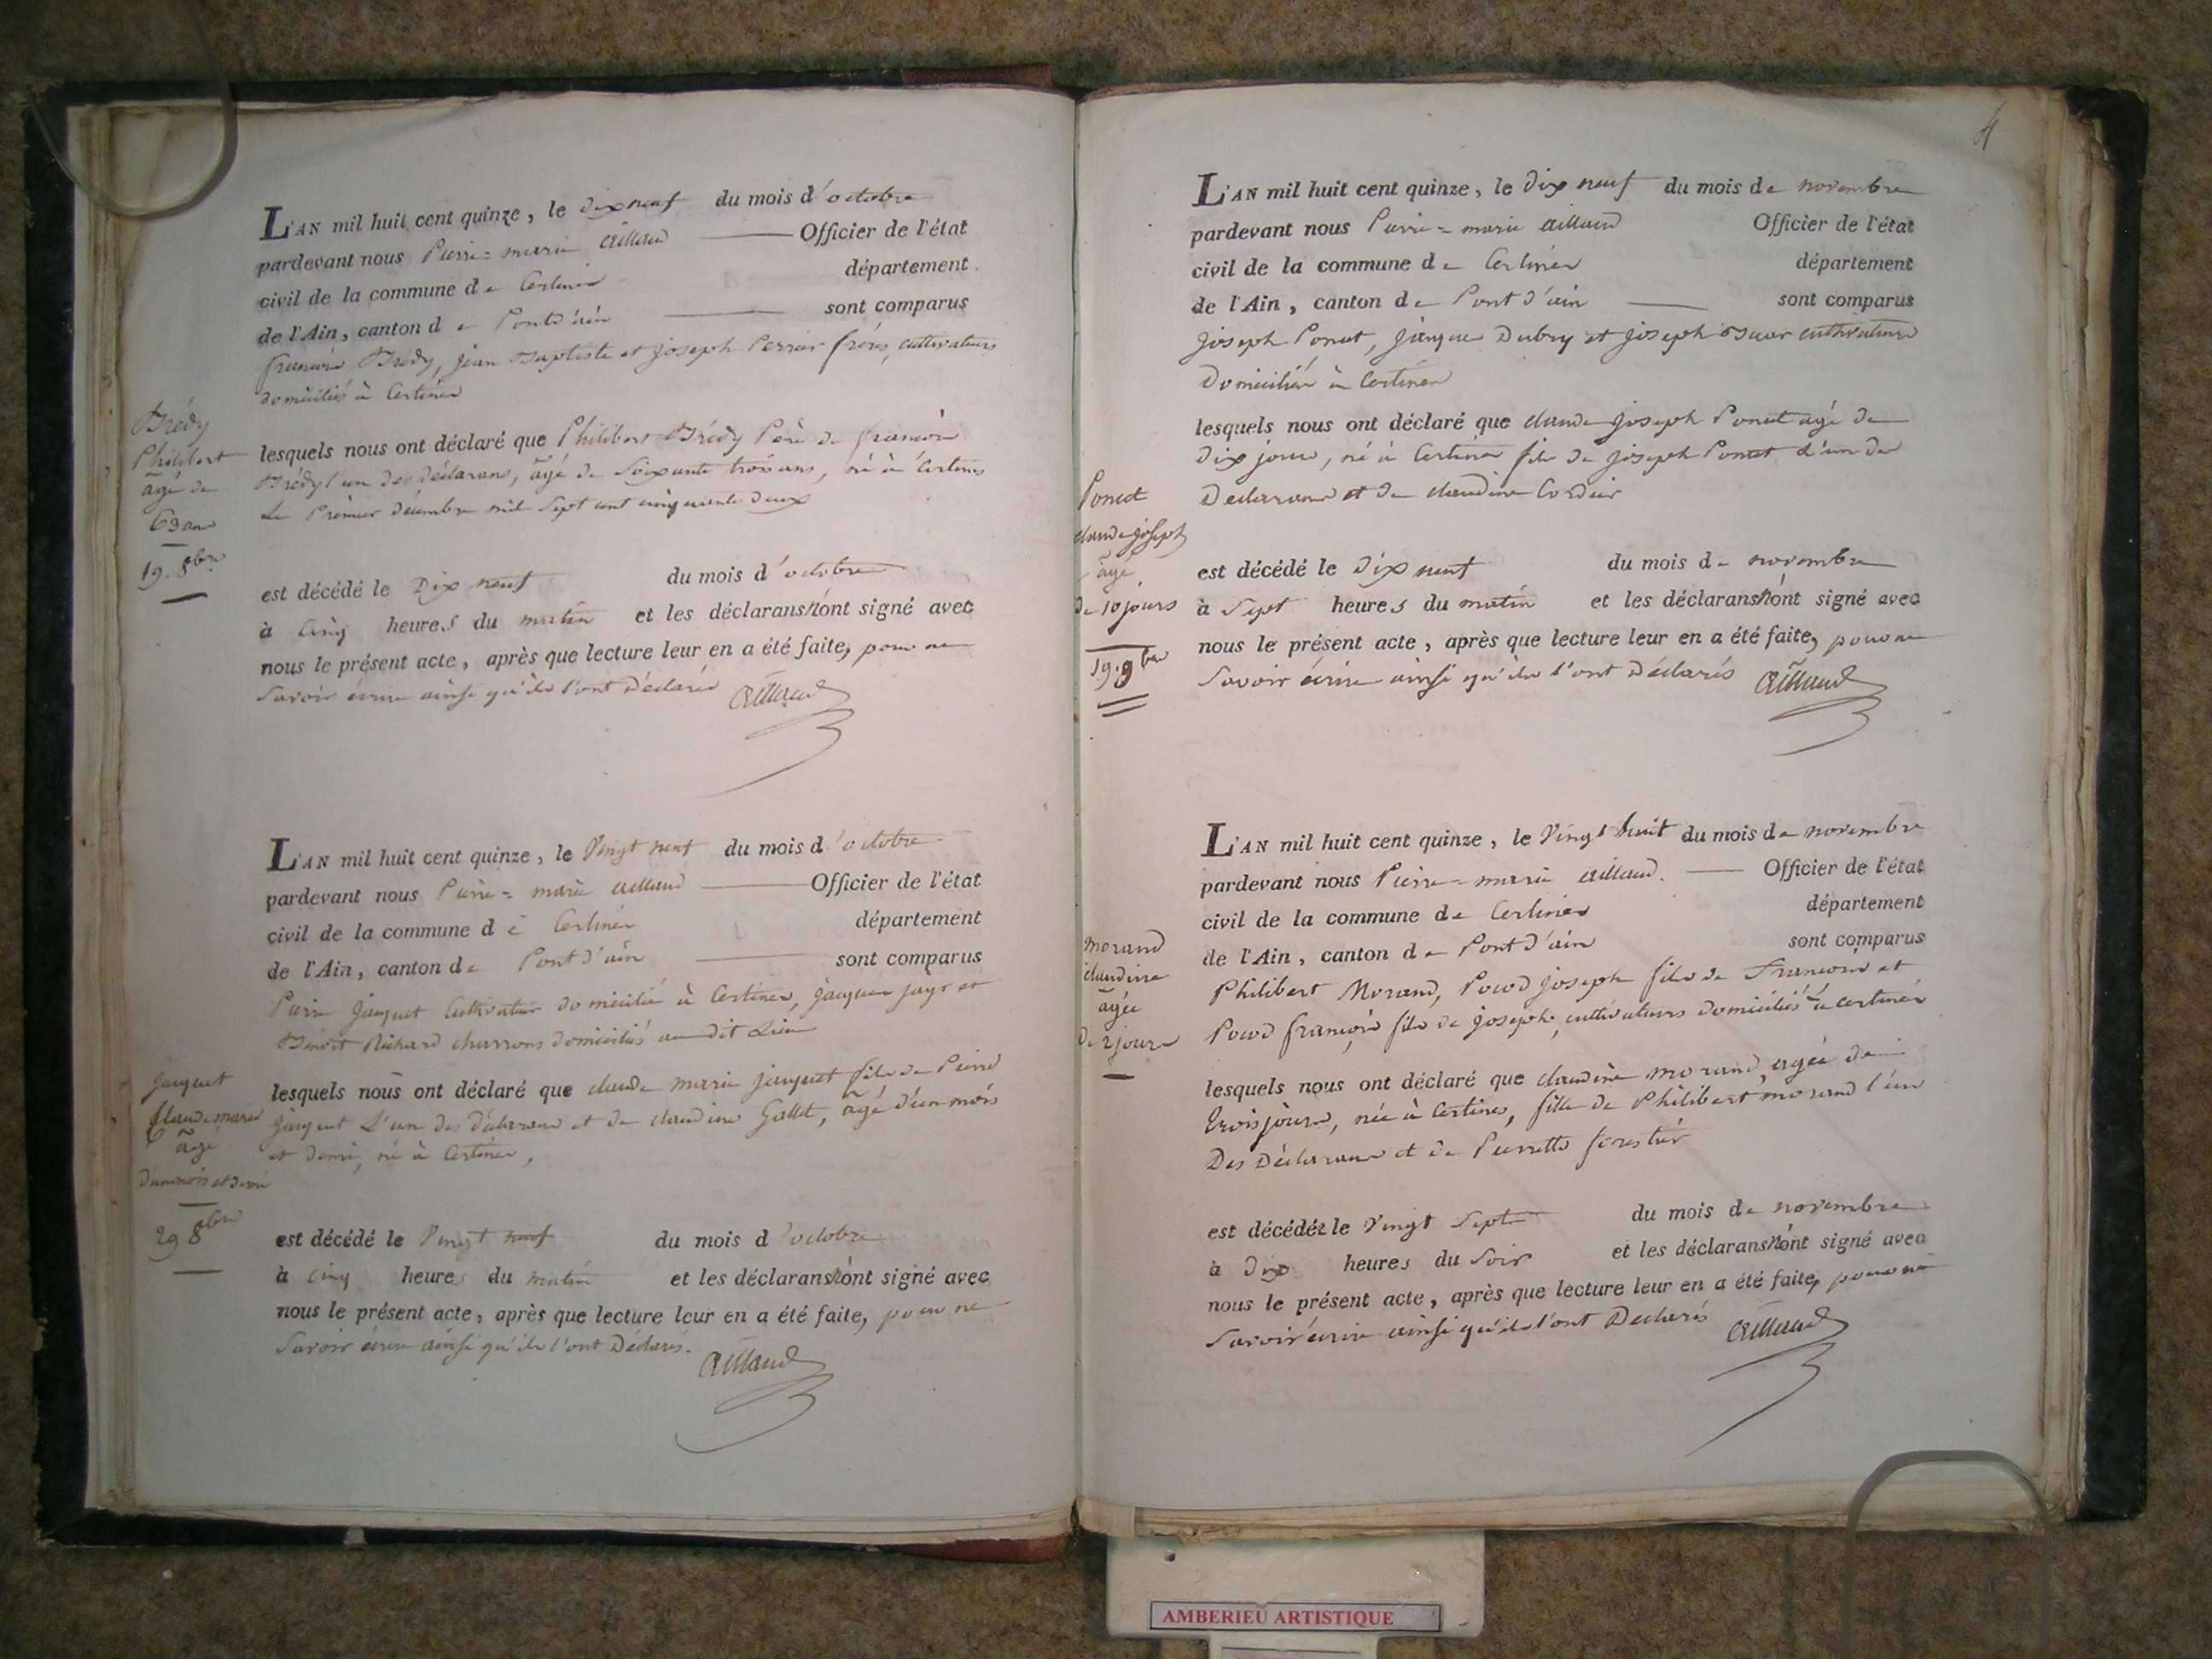 L'AN mil huit cent quinze, le dix neuf du mois d'octobre
pardevant nous Pierre=marie aillaud Officier de l'état
civil de la commune de Certines département
de l'Ain, canton de Pont d'ain sont comparus
françois Brédy, jean Baptiste et joseph Perrier frères, cultivateurs
domiciliés à Certines
Brédy
Philibert
agé de
63 ans
19. 8bre
lesquels nous ont déclaré que Philibert Brédy Père de françois
Brédy l'un des déclarans, âgé de Soixante trois ans, né à Certines
Le Prémier décembre mil Sept cent cinquante deux
est décédé le Dix neuf du mois d'octobre
à cinq heures du matin et les déclarans n'ont signé avec
nous le présent acte, après que lecture leur en a été faite, pour ne
Savoir écrire ainsi qu'ils l'ont Déclarés Aillaud
L'AN mil huit cent quinze, le Vingt neuf du mois d'octobre
pardevant nous Pierre=marie aillaud Officier de l'état
civil de la commune de Certines département
de l'Ain, canton de Pont d'ain sont comparus
Pierre Janguet Cultivateur domicilié à Certines, jacques jayr et
Benoit Richard charrons domiciliés au dit Lieu
Claude marie
âgé
d'un mois et demi
29 8bre
lesquels nous ont déclaré que claude marie fils de Pierre
L'un des déclarans et de claudine Gallet, âgé d'un mois
et demi, né à Certines,
est décédé le Vingt neuf du mois d'octobre
à cinq heures du matin et les déclarans n'ont signé avec
nous le présent acte, après que lecture leur en a été faite, pour ne
Savoir écrire ainsi qu'ils l'ont Déclarés. Aillaud
4
L'AN mil huit cent quinze, le Dix neuf du mois de novembre
pardevant nous Pierre=marie aillaud Officier de l'état
civil de la commune de Certines département
de l'Ain, canton de Pont d'ain sont comparus
joseph Poncet, jacques Dubry et joseph cultivateurs
Domiciliés à Certines
Poncet
claude joseph
âgé
de 10 jours
19. 9bre
lesquels nous ont déclaré que claude joseph Poncet agé de
dix jours, né à Certines fils de joseph Poncet l'un des
Déclarans et de claudine Cordier
est décédé le dix neuf du mois de novembre
à Sept heures du matin et les déclarans n'ont signé avec
nous le présent acte, après que lecture leur en a été faite, pour ne
Savoir écrire ainsi qu'ils l'ont Déclarés Aillaud
L'AN mil huit cent quinze, le Vingt huit du mois de novembre
pardevant nous Pierre=marie aillaud. Officier de l'état
civil de la commune de Certines département
de l'Ain, canton de Pont d'ain sont comparus
Philibert Morand, joseph fils de François et
françois fils de joseph, cultivateurs domiciliés à certines
morand
claudine
âgée
de 2 jours
lesquels nous ont déclaré que claudine morand, agée de
trois jours, née à Certines, fille de Philibert morand l'un
Des Déclarans et de Pierrette forestier
est décédée le Vingt Sept du mois de novembre
à Dix heures du Soir et les déclarans n'ont signé avec
nous le présent acte, après que lecture leur en a été faite, pour ne
Savoir écrire ainsi qu'ils l'ont Déclarés Aillaud
AMBERIEU ARTISTIQUE